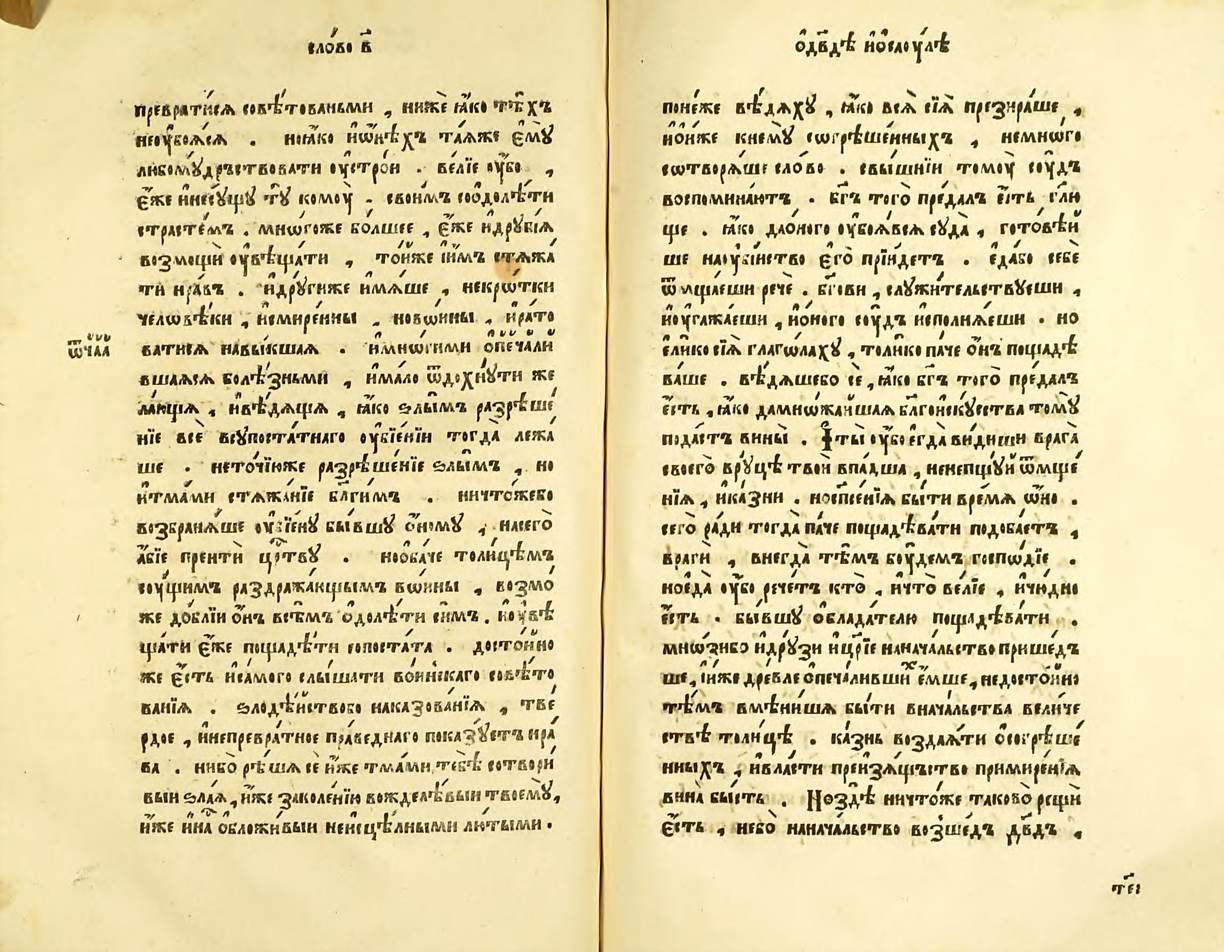 сло́во в҃
превра́тися совѣ́тованьми , нижѐ ꙗ҆́ко тѣ́хъ
неꙋ҆боѧ́сѧ . но ꙗ҆́ко и҆ѡ҆нѣ́хъ та́ꙗже є҆мꙋ̀
любомꙋ́дръствовати ᲂу҆стро́и . ве́лїе ᲂу҆́бо ,
є҆́же и҆несꙋ́щꙋ тꙋ̀ комоу̀ . свои́мъ соѻдолѣ́ти
страсте́мъ . мно́гоже бо́лшее , є҆́же и҆дрꙋгі́ѧ
возмощѝ ᲂу҆вѣща́ти , то́йже и҆́мъ стѧжа́
ти нра́въ . и҆дрꙋги́же и҆мѧ́ше , некрѡ́тки
человѣ́ки , и҆смире́нны , новѡ́ины , и҆рато
ватисѧ навы́кшаѧ . и҆мнѡ́гими ѻ҆печали
ѿча́ѧ
вшаѧсѧ болѣ́зньми , и҆ма́ло ѿдохнꙋ́ти же
ла́ющѧ , и҆вѣ́дѧщѧ , ꙗ҆́ко ѕлы́мъ разрѣше́
нїе всѐ всꙋпоста́тнаго ᲂу҆бїе́нїи тогда̀ лежа́
ше . нето́чїюже разрѣше́нїе ѕлы́мъ , но
и҆тма́ми стѧжа́нїе бл҃ги́мъ . ничто́жебо
возбранѧ́ше ᲂу҆бїе́нꙋ бы́вшꙋ ѻ҆́номꙋ , насего̀
а҆́бїе преитѝ црⷭ҇твꙋ . нооба́че толи́цѣмъ
соу́щимъ раздража́ющымъ вѡ́ины , возмо́
же до́блїи ѻ҆́нъ всѣ́мъ ѻ҆долѣ́ти си́мъ . и҆ᲂу҆вѣ
ща́ти є҆́же пощадѣ́ти сопоста́та . досто́йно
же є҆́сть и҆самого слы́шати во́инскаго совѣ́то
ванїѧ . ѕлодѣ́йствобо наказова́нїѧ , тве́
рдое , и҆непревра́тное пра́веднаго пока́зꙋетъ нра́
ва . ни́бо рѣ́шѧ сѐ и҆́же тма́ми тебѣ̀ сотвори́
выи ѕла́ѧ , и҆́же заколе́нїю вожделѣ́выи твоемꙋ̀ ,
и҆́же и҆на̀ ѻ҆бложи́выи неисцѣ́лными лю́тыми .
ѻ҆дв҃дѣ и҆ѻ҆сао́улѣ
поне́же вѣ́дѧхꙋ , ꙗ҆́ко всѧ̀ сїѧ̀ презира́ше ,
и҆ѻ҆и҆́же кнемꙋ̀ сѡгрѣше́нныхъ , немно́го
сѡтворѧ́ше сло́во . свы́шнїи томоу̀ соу́дъ
воспомина́ютъ . бг҃ъ того̀ преда́лъ є҆́сть гл҃ю
ще . ꙗ҆́ко да ѻ҆́ного ᲂу҆боѧ́всѧ сꙋда̀ , гото́вѣй
ше наᲂу҆бі́йство є҆го̀ прїи́детъ . є҆да́бо себе
ѿмща́еши речѐ . бг҃ови , слꙋжи́тельствꙋеши ,
и҆ᲂу҆гажа́еши , и҆ѻ҆́ного соу́дъ и҆сполнѧ́еши . но
є҆ли́ко сїѧ̀ глаго́лахꙋ , толи́ко па́че ѻ҆́нъ пощадѣ
ва́ше . вѣ́дѧшебо сѐ , ꙗ҆́ко бг҃ъ того̀ преда́лъ
є҆́сть , ꙗ҆́ко дамно́жайшаѧ бл҃гоискꙋ́ства томꙋ̀
пода́стъ вины̀ . И҆ ты̀ ᲂу҆́бо е҆гда̀ ви́диши врага̀
своего̀ врꙋцѣ̀ твоѝ впа́дша , ненепщꙋ́й ѿмще́
нїѧ , и҆ка́зни . носпасе́нїѧ бы́ти вре́мѧ ѡ҆́но .
сего̀ ра́ди тогда̀ па́че пощадѣ́вати подоба́етъ ,
врагѝ , внегда̀ тѣ́мъ бꙋ́демъ госпѡ́дїе .
ноедà ᲂу҆́бо рече́тъ кто̀ , и҆что̀ ве́лїе , и҆чю́дно
є҆́сть . бы́вшꙋ ѻ҆блада́телю пощадѣ́вати .
мно́зибо и҆дрꙋ́зи и҆цр҃їе на нача́льство прише́дъ
ше , и҆́же дре́вле ѻ҆печа́ливши́хъ є҆́мше , недосто́йно
тѣ́мъ вмѣни́шѧ бы́ти внача́льства вели́че
ствѣ толи́цѣ . ка́знь воздаѧ́ти ѻ҆согрѣше́
нныхъ , и҆вла́сти преизѧ́щьство примире́нїѧ
вина̀ бы́сть . Ноздѐ ничто́же таково̀ рещѝ
є҆́сть , не́бо нанача́льство возше́дъ дв҃дъ ,
та́ѣ